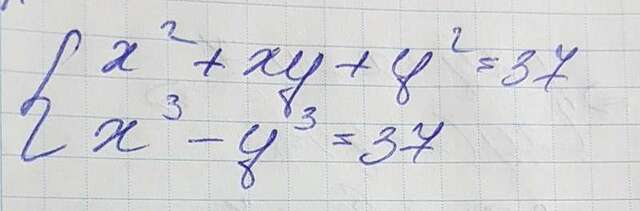 x² + xy + y² = 37
x³ - y³ = 37